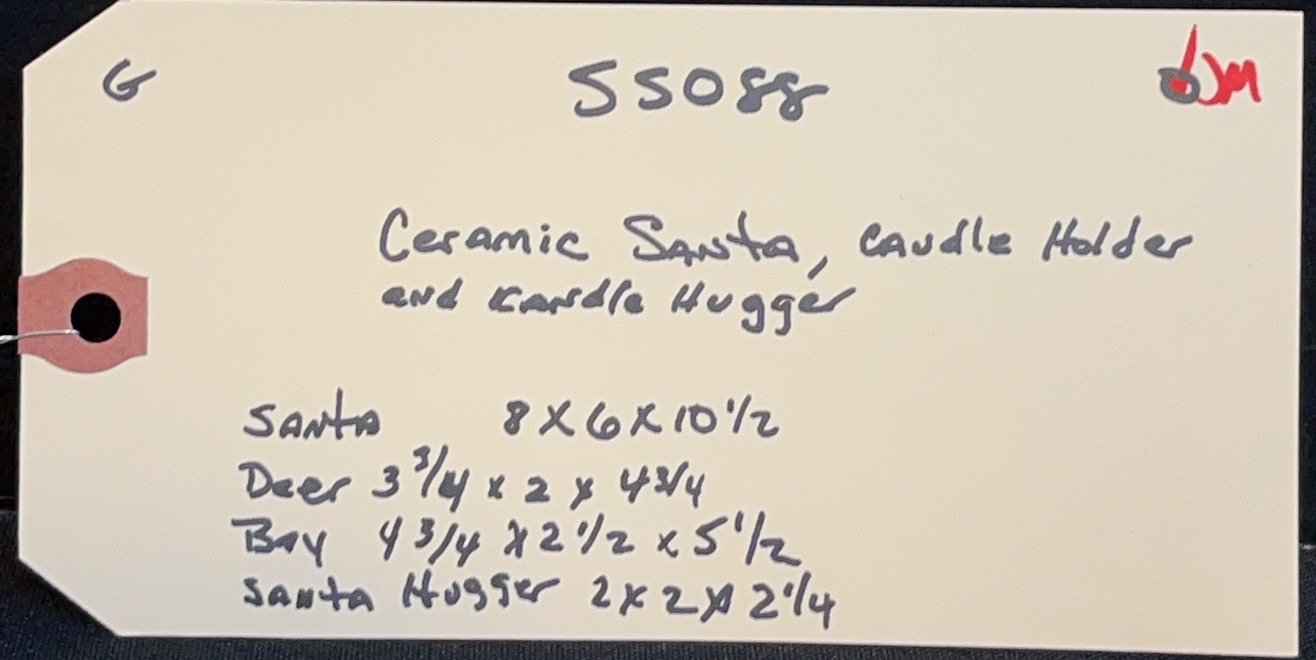 G 55088
Ceramic Santa, Candle Holder
and Candle Hugger
Santa 8 x 6 x 10 1/2
Deer 3 3/4 x 2 x 4 3/4
Boy 4 3/4 x 2 1/2 x 5 1/2
Santa Hugger 2 x 2 x 2 1/4